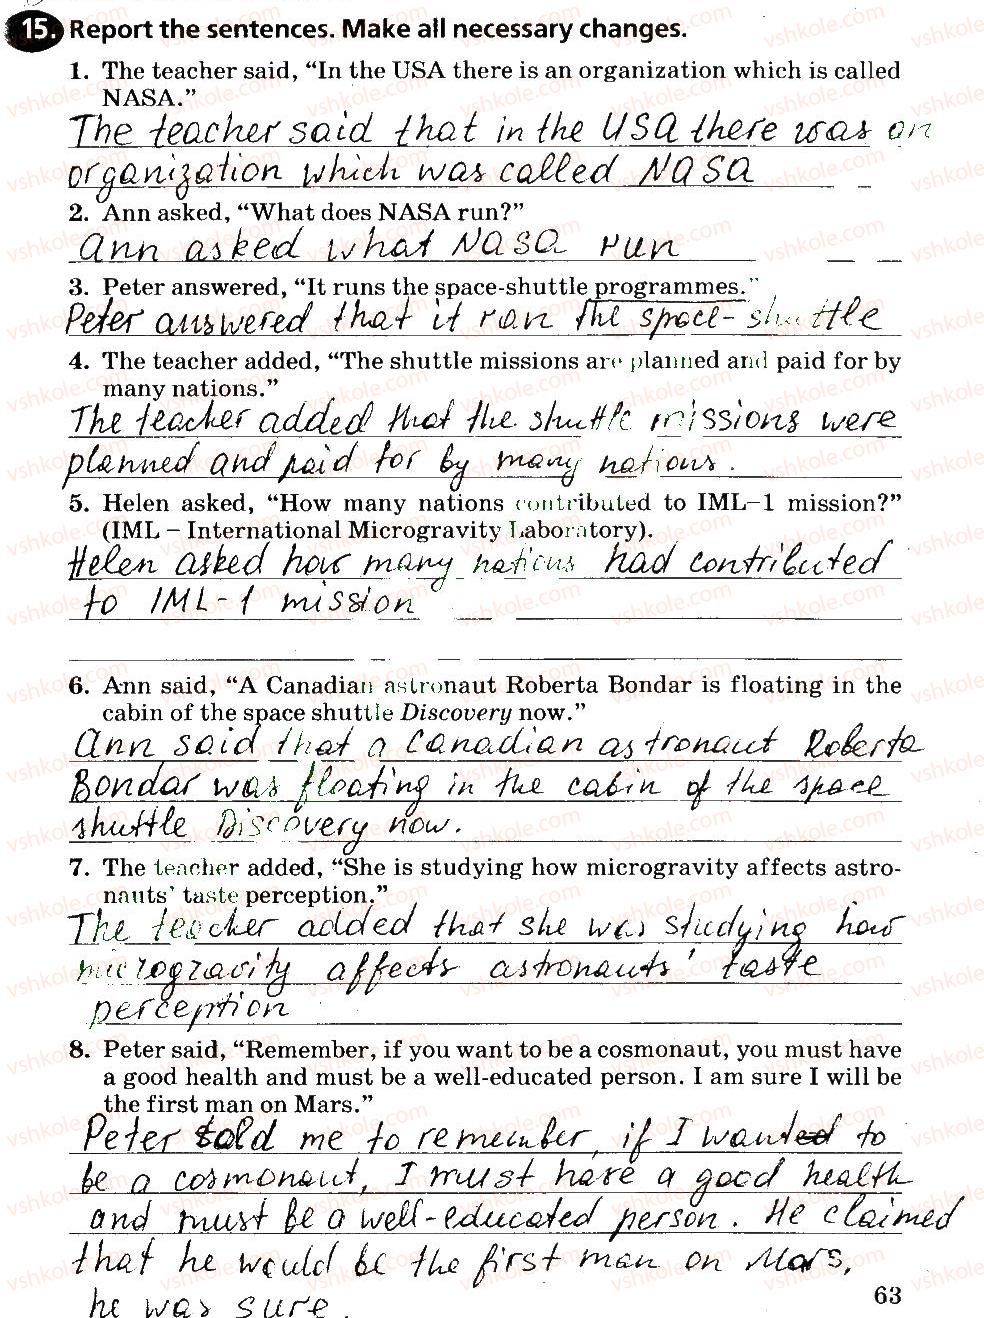 15. Report the sentences. Make all necessary changes.
1. The teacher said, “In the USA there is an organization which is called
NASA.”
The teacher said that in the USA there was an
organization which was called NASA
2. Ann asked, “What does NASA run?”
Ann asked what NASA run
3. Peter answered, “It runs the space-shuttle programmes.”
Peter answered that it ran the space-shuttle
4. The teacher added, “The shuttle missions are planned and paid for by
many nations.”
The teacher added that the shuttle missions were
planned and paid for by many nations.
5. Helen asked, “How many nations contributed to IML–1 mission?”
(IML – International Microgravity Laboratory).
Helen asked how many nations had contributed
to IML-1 mission
6. Ann said, “A Canadian astronaut Roberta Bondar is floating in the
cabin of the space shuttle Discovery now.”
Ann said that a Canadian astronaut Roberta
Bondar was floating in the cabin of the space
shuttle Discovery now.
7. The teacher added, “She is studying how microgravity affects astro-
nauts’ taste perception.”
The teacher added that she was studying how
microgravity affects astronauts’ taste
perception
8. Peter said, “Remember, if you want to be a cosmonaut, you must have
a good health and must be a well-educated person. I am sure I will be
the first man on Mars.”
Peter told me to remember, if I wanted to
be a cosmonaut, I must have a good health
and must be a well-educated person. He claimed
that he would be the first man on Mars,
he was sure.
63